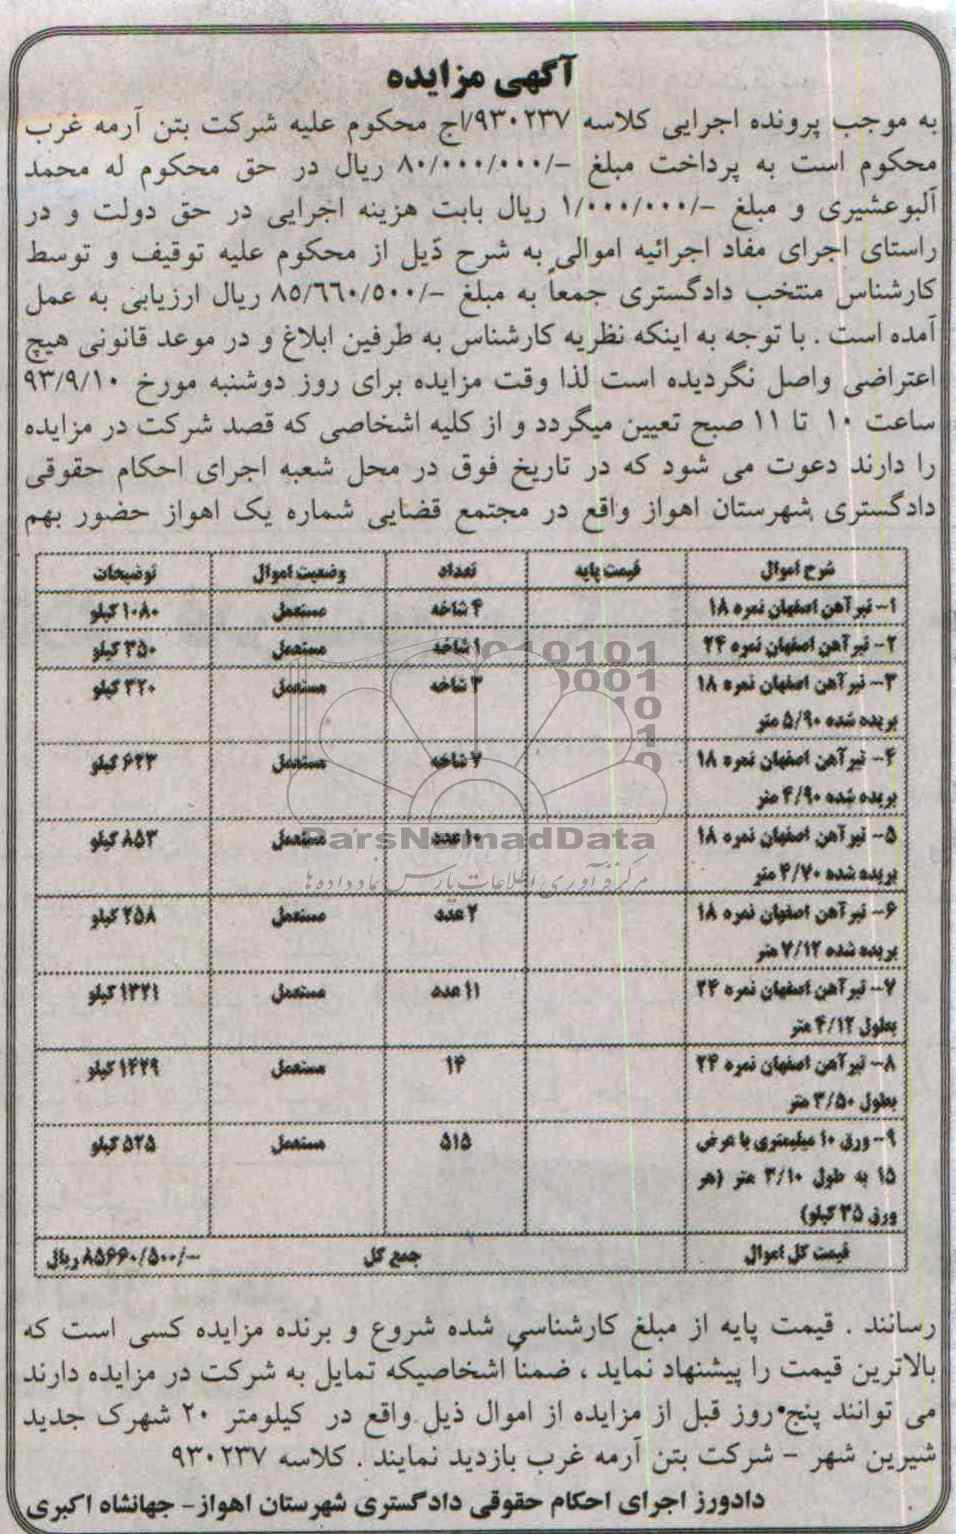 آگهی مزایده
به موجب پرونده اجرایی کلاسه ۹۳۰۲۳۷/اج محکوم علیه شرکت بتن آرمه غرب
محکوم است به پرداخت مبلغ -/۸۰/۰۰۰/۰۰۰ ریال در حق محکوم له محمد
آلبوعشیری و مبلغ -/۱/۰۰۰/۰۰۰ ریال بابت هزینه اجرایی در حق دولت و در
راستای اجرای مفاد اجرائیه اموالی به شرح ذیل از محکوم علیه توقیف و توسط
کارشناس منتخب دادگستری جمعاً به مبلغ -/۸۵/۶۶۰/۵۰۰ ریال ارزیابی به عمل
آمده است . با توجه به اینکه نظریه کارشناس به طرفین ابلاغ و در موعد قانونی هیچ
اعتراضی واصل نگردیده است لذا وقت مزایده برای روز دوشنبه مورخ ۹۳/۹/۱۰
ساعت ۱۰ تا ۱۱ صبح تعیین میگردد و از کلیه اشخاصی که قصد شرکت در مزایده
را دارند دعوت می شود که در تاریخ فوق در محل شعبه اجرای احکام حقوقی
دادگستری شهرستان اهواز واقع در مجتمع قضایی شماره یک اهواز حضور بهم
شرح اموال قیمت پایه تعداد وضعیت اموال توضیحات
۱- تیرآهن اصفهان نمره ۱۸ ۴ شاخه مستعمل ۱۰۸۰ کیلو
۲- تیرآهن اصفهان نمره ۲۴ ۱ شاخه مستعمل ۳۵۰ کیلو
۳- تیرآهن اصفهان نمره ۱۸ ۳ شاخه مستعمل ۳۲۰ کیلو
بریده شده ۵/۹۰ متر
۴- تیرآهن اصفهان نمره ۱۸ ۷ شاخه مستعمل ۶۲۳ کیلو
بریده شده ۴/۹۰ متر
۵- تیرآهن اصفهان نمره ۱۸ ۱۰ عدد مستعمل ۸۵۳ کیلو
بریده شده ۴/۷۰ متر
۶- تیرآهن اصفهان نمره ۱۸ ۲ عدد مستعمل ۲۵۸ کیلو
بریده شده ۷/۱۲ متر
۷- تیرآهن اصفهان نمره ۲۴ ۱۱ عدد مستعمل ۱۳۲۱ کیلو
بطول ۴/۱۲ متر
۸- تیرآهن اصفهان نمره ۲۴ ۱۴ مستعمل ۱۴۲۹ کیلو
بطول ۳/۵۰ متر
۹- ورق ۱۰ میلیمتری با عرض ۵۱۵ مستعمل ۵۲۵ کیلو
۱۵ به طول ۳/۱۰ متر (هر
ورق ۳۵ کیلو)
قیمت کل اموال جمع کل -/۸۵۶۶۰/۵۰۰ ریال
ParsNamadData
مرکز فرآوری اطلاعات پارس نماد داده ها
رسانند . قیمت پایه از مبلغ کارشناسی شده شروع و برنده مزایده کسی است که
بالاترین قیمت را پیشنهاد نماید ، ضمناً اشخاصیکه تمایل به شرکت در مزایده دارند
می توانند پنج روز قبل از مزایده از اموال ذیل واقع در کیلومتر ۲۰ شهرک جدید
شیرین شهر - شرکت بتن آرمه غرب بازدید نمایند . کلاسه ۹۳۰۲۳۷
دادورز اجرای احکام حقوقی دادگستری شهرستان اهواز- جهانشاه اکبری